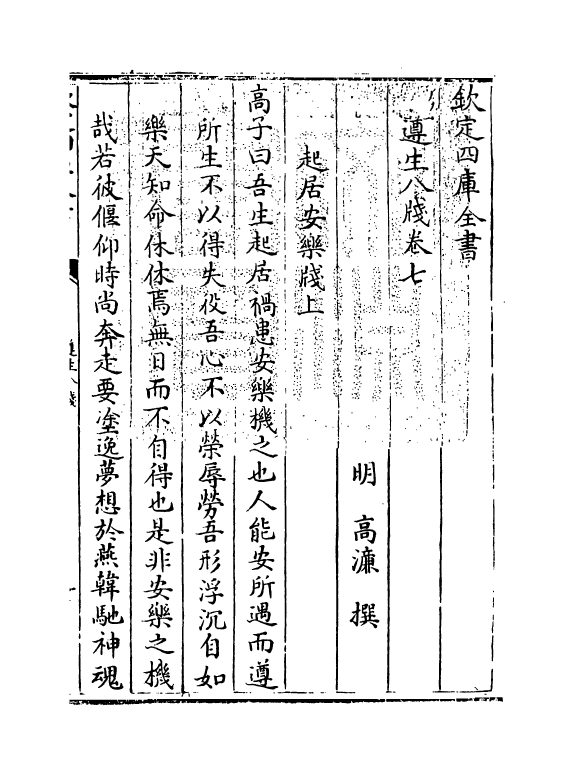 欽定四庫全書
遵生八牋卷七
明 高濂 撰
起居安樂牋上
高子曰吾生起居禍患安樂機之也人能安所遇而遵
所生不以得失役吾心不以榮辱勞吾形浮沉自如
樂天知命休休焉無日而不自得也是非安樂之機
哉若彼偃仰時尚奔走要塗逸夢想於燕韓馳神魂
遵生八牋